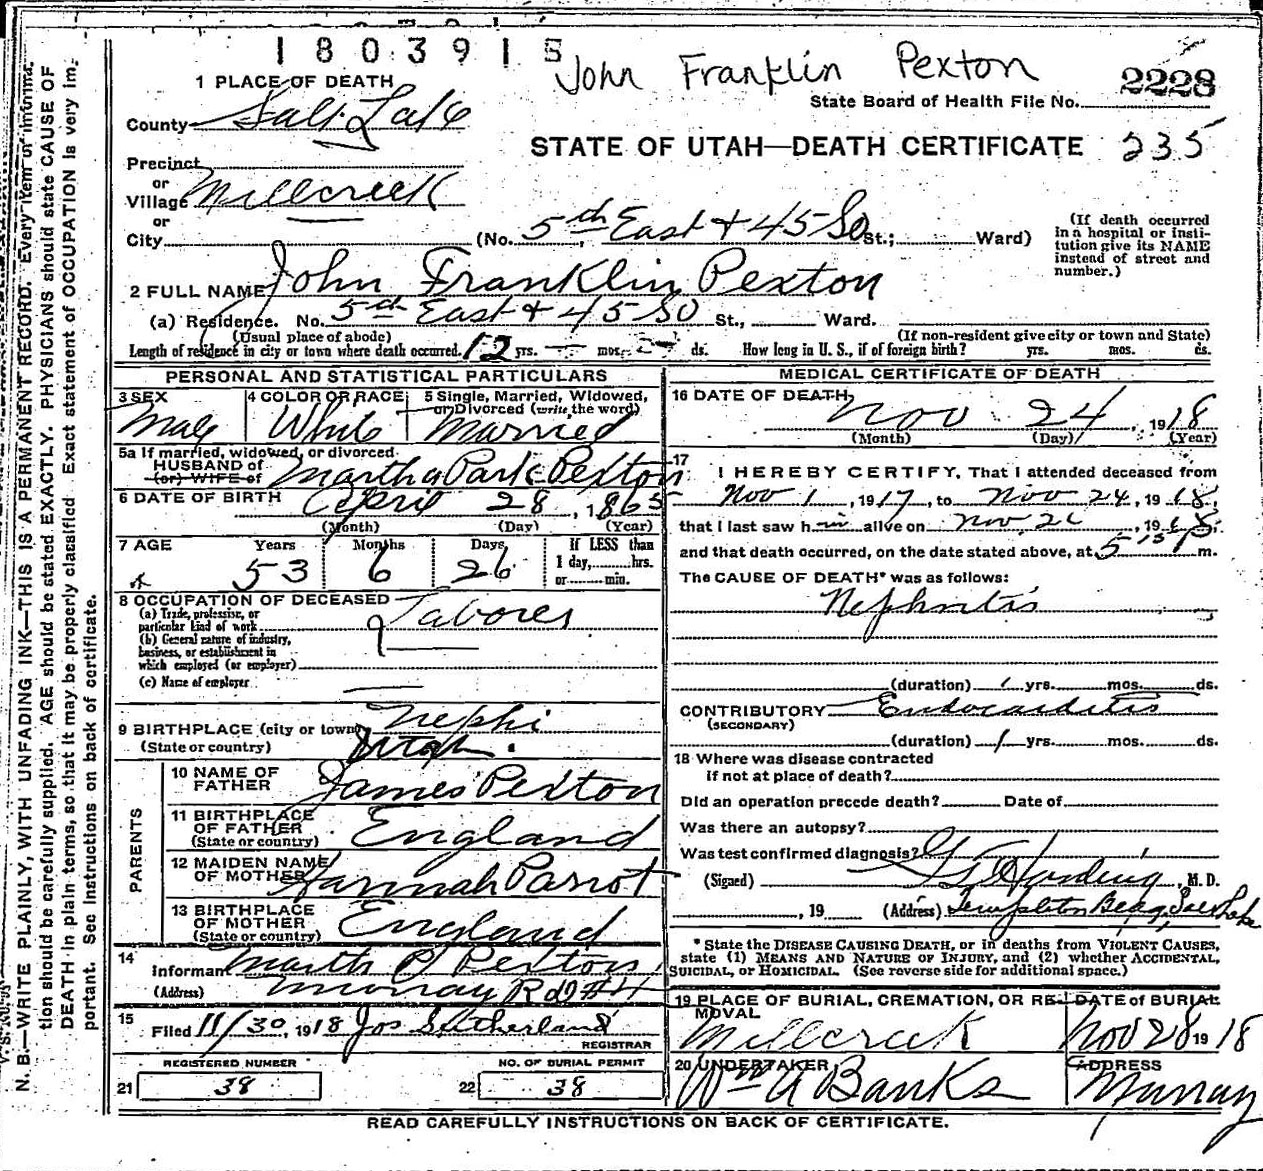 1803915
John Franklin Pexton
2228
State Board of Health File No.
1 PLACE OF DEATH
County Salt Lake
STATE OF UTAH—DEATH CERTIFICATE 235
Precinct
or
Village Millcreek
or
City (No. 5th East + 45 So St.; Ward)
(If death occurred in a hospital or insti-
tution give its NAME
instead of street and
number.)
2 FULL NAME John Franklin Pexton
(a) Residence. No. 5th East + 45 So St., Ward.
(Usual place of abode) (If non-resident give city or town and State)
Length of residence in city or town where death occurred. 12 yrs. — mos. — ds. How long in U. S., if of foreign birth? yrs. mos. ds.
PERSONAL AND STATISTICAL PARTICULARS
3 SEX Male
4 COLOR OR RACE White
5 Single, Married, Widowed, or Divorced (write the word) Married
5a If married, widowed, or divorced
HUSBAND of
(or) WIFE of Martha Park Pexton
6 DATE OF BIRTH April 28, 1865
(Month) (Day) (Year)
7 AGE Years Months Days If LESS than
53 6 26 1 day, hrs.
or min.
8 OCCUPATION OF DECEASED
(a) Trade, profession, or
particular kind of work Laborer
(b) General nature of industry,
business, or establishment in
which employed (or employer)
(c) Name of employer
9 BIRTHPLACE (city or town) Nephi
(State or country) Utah.
PARENTS
10 NAME OF
FATHER James Pexton
11 BIRTHPLACE
OF FATHER England
(State or country)
12 MAIDEN NAME
OF MOTHER Hannah Parrot
13 BIRTHPLACE
OF MOTHER England
(State or country)
14 Informant Martha P Pexton
(Address) Murray R D #4
15 Filed 11/30, 1918 Jos Sutherland
REGISTRAR
REGISTERED NUMBER
21 38
NO. OF BURIAL PERMIT
22 38
MEDICAL CERTIFICATE OF DEATH
16 DATE OF DEATH Nov 24, 1918
(Month) (Day) (Year)
17 I HEREBY CERTIFY, That I attended deceased from
Nov 1, 1917, to Nov 24, 1918,
that I last saw him alive on Nov, 1918
and that death occurred, on the date stated above, at 5 15 P m.
The CAUSE OF DEATH* was as follows:
Nephritis
(duration) 1 yrs. mos. ds.
CONTRIBUTORY Endocarditis
(SECONDARY)
(duration) 1 yrs. mos. ds.
18 Where was disease contracted
if not at place of death?
Did an operation precede death? Date of
Was there an autopsy?
Was test confirmed diagnosis?
(Signed) Harding, M. D.
, 19 (Address) Templeton Bldg, Salt Lake
*State the DISEASE CAUSING DEATH, or in deaths from VIOLENT CAUSES,
state (1) MEANS AND NATURE OF INJURY, and (2) whether ACCIDENTAL,
SUICIDAL, or HOMICIDAL. (See reverse side for additional space.)
19 PLACE OF BURIAL, CREMATION, OR RE-
MOVAL Millcreek
DATE of BURIAL Nov 28 1918
20 UNDERTAKER Wm A Banks
ADDRESS Murray
READ CAREFULLY INSTRUCTIONS ON BACK OF CERTIFICATE.
N. B.—WRITE PLAINLY, WITH UNFADING INK—THIS IS A PERMANENT RECORD. Every item of informa-
tion should be carefully supplied. AGE should be stated EXACTLY. PHYSICIANS should state CAUSE OF
DEATH in plain terms, so that it may be properly classified. Exact statement of OCCUPATION is very im-
portant. See instructions on back of certificate.